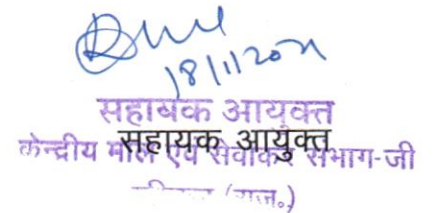 18/11/2021
सहायक आयुक्त
सहायक आयुक्त
केन्द्रीय माल एवं सेवाकर संभाग-जी
(राज०)